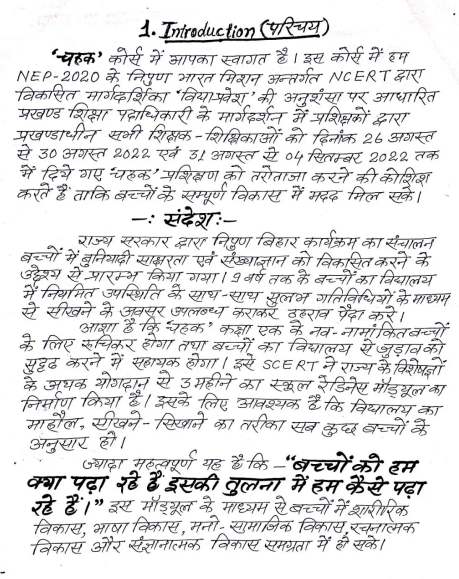 1. Introduction (परिचय)
'चहक' कोर्स में आपका स्वागत है। इस कोर्स में हम
NEP-2020 के निपुण भारत मिशन अन्तर्गत NCERT द्वारा
विकसित मार्गदर्शिका 'विद्याप्रवेश' की अनुशंसा पर आधारित
प्रखण्ड शिक्षा पदाधिकारी के मार्गदर्शन में प्रशिक्षकों द्वारा
प्रखण्डाधीन सभी शिक्षक-शिक्षिकाओं को दिनांक 26 अगस्त
से 30 अगस्त 2022 एवं 31 अगस्त से 04 सितम्बर 2022 तक
में दिये गए 'चहक' प्रशिक्षण को तरोताजा करने की कोशिश
करते हैं ताकि बच्चों के सम्पूर्ण विकास में मदद मिल सके।
-: संदेश:-
राज्य सरकार द्वारा निपुण बिहार कार्यक्रम का संचालन
बच्चों में बुनियादी साक्षरता एवं संख्याज्ञान को विकसित करने के
उद्देश्य से प्रारम्भ किया गया। 9 वर्ष तक के बच्चों का विद्यालय
में नियमित उपस्थिति के साथ-साथ सुलभ गतिविधियों के माध्यम
से सीखने के अवसर उपलब्ध कराकर ठहराव पैदा करे।
आशा है कि 'चहक' कक्षा एक के नव-नामांकित बच्चों
के लिए रुचिकर होगा तथा बच्चों का विद्यालय से जुड़ाव को
सुदृढ करने में सहायक होगा। इसे SCERT ने राज्य के विशेषज्ञों
के अथक योगदान से 3 महीने का स्कूल रेडिनेस मॉड्यूल का
निर्माण किया है। इसके लिए आवश्यक है कि विद्यालय का
माहौल, सीखने-सिखाने का तरीका सब कुछ बच्चों के
अनुसार हो।
ज्यादा महत्वपूर्ण यह है कि -"बच्चों को हम
क्या पढ़ा रहे हैं इसकी तुलना में हम कैसे पढ़ा
रहे हैं।" इस मॉड्यूल के माध्यम से बच्चों में शारीरिक
विकास, भाषा विकास, मनो-सामाजिक विकास, रचनात्मक
विकास और संज्ञानात्मक विकास समग्रता में हो सके।